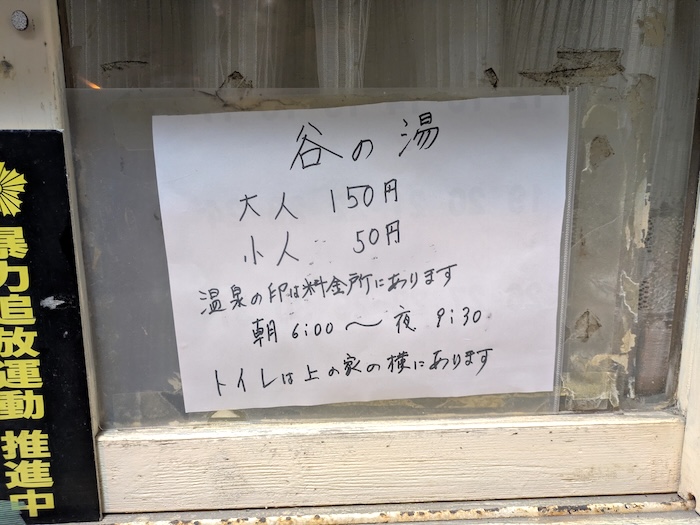 谷の湯
大人 150円
小人 50円
温泉の印は料金所にあります
朝 6:00〜夜 9:30
トイレは上の家の横にあります
暴力追放運動 推進中